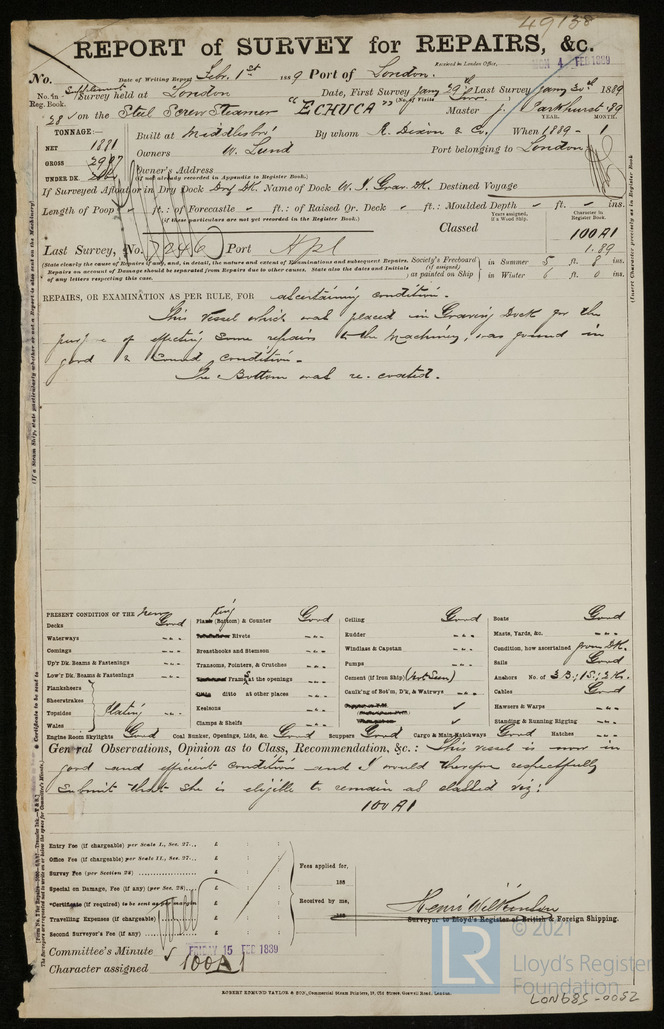 49138
REPORT of SURVEY for REPAIRS, &c.
Received in London Office,
MON 4 FEB 1889
No. Date of Writing Report Feby. 1st 1889 Port of London.
No. in Reg. Book. Supplement Survey held at London Date, First Survey Jany 29th Last Survey Jany 30th 1889
(No. of Visits
28 on the Steel Screw Steamer "ECHUCA" Master J. Parkhurst-89
YEAR. MONTH.
TONNAGE:—
NET 1881
GROSS
UNDER DK.
Built at Middlesbro' By whom R. Dixon & Co. When 1889 - 1
Owners W. Lund Port belonging to London
Owner's Address
(If not already recorded in Appendix to Register Book.)
If Surveyed Afloat or in Dry Dock Dry Dk. Name of Dock W. I. Grav. Dk. Destined Voyage
Length of Poop ft.: of Forecastle ft.: of Raised Qr. Deck ft.: Moulded Depth ft. ins.
(If these particulars are not yet recorded in the Register Book.)
Classed
Years assigned, if a Wood Ship.
Character in Register Book.
100A1
1.89
Last Survey, No. 7246 Port
(State clearly the cause of Repairs if any, and, in detail, the nature and extent of Examinations and subsequent Repairs.
Repairs on account of Damage should be separated from Repairs due to other causes. State also the dates and Initials
of any letters respecting this case.
Society's Freeboard (if assigned) as painted on Ship
in Summer 5 ft. 8 ins.
in Winter 6 ft. 0 ins.
REPAIRS, OR EXAMINATION AS PER RULE, FOR ascertaining condition.
This Vessel which was placed in Graving Dock for the
purpose of effecting some repairs to the Machinery, was found in
good & sound condition.
The Bottom was re-coated.
PRESENT CONDITION OF THE
Decks Good
Waterways
Comings
Up'r Dk. Beams & Fastenings
Low'r Dk. Beams & Fastenings
Planksheers
Sheerstrakes
Topsides
Wales
Plating
Engine Room Skylights Good
Plating (Bottom) & Counter Good
Rivets
Breasthooks and Stemson
Transoms, Pointers, & Crutches
Frames at the openings
ditto at other places
Keelsons
Clamps & Shelfs
Coal Bunker, Openings, Lids, &c. Good
Ceiling Good
Rudder
Windlass & Capstan
Pumps
Cement (if Iron Ship) (Not Seen)
Caulk'ng of Bot'm, D'k, & Watrwys
Scuppers Good
Cargo & Main Hatchways Good
Boats Good
Masts, Yards, &c.
Condition, how ascertained from Dk.
Sails Good
Anchors No. of 3B; 1S; 2K.
Cables Good
Hawsers & Warps
Standing & Running Rigging
Hatches
General Observations, Opinion as to Class, Recommendation, &c.: This vessel is now in
good and efficient condition and I would therefore respectfully
submit that she is eligible to remain as classed viz:
100A1
Entry Fee (if chargeable) per Scale I., Sec. 27... £
Office Fee (if chargeable) per Scale II., Sec. 27... £
Survey Fee (per Section 28) £
Special on Damage, Fee (if any) (per Sec. 28) £
*Certificate (if required) to be sent as per margin
Travelling Expenses (if chargeable) £
Second Surveyor's Fee (if any) £
Fees applied for,
188
Received by me,
188
Henri Wilkinson
Surveyor to Lloyd's Register of British & Foreign Shipping.
Committee's Minute FRIDAY 15 FEB 1889
Character assigned 100A1
ROBERT EDMUND TAYLOR & SON, Commercial Steam Printers, 19, Old Street, Goswell Road, London.
© 2021
LR
Lloyd's Register
Foundation
LON685-0052